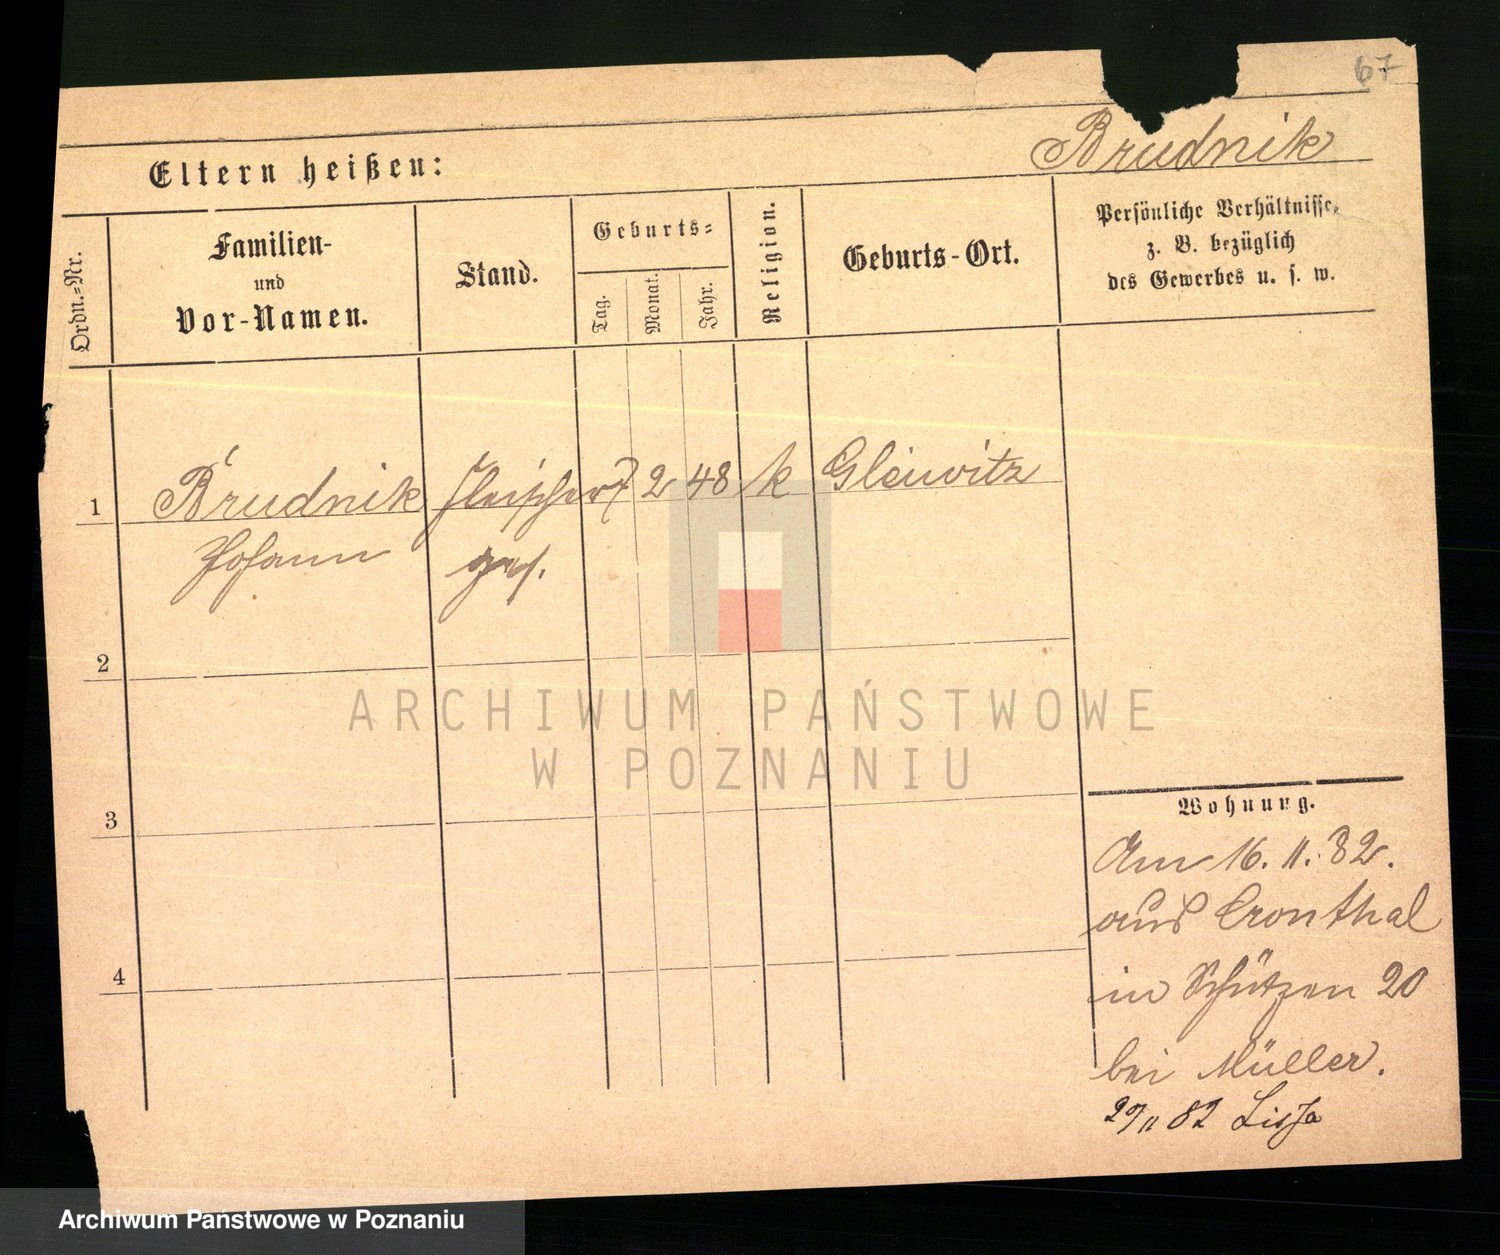 67
Brudnik
Eltern heißen:
Ordn.-Nr.
Familien-
und
Vor-Namen.
Stand.
Geburts-
Tag.
Monat.
Jahr.
Religion.
Geburts-Ort.
Persönliche Verhältnisse,
z. B. bezüglich
des Gewerbes u. s. w.
1 Brudnik Fleischer 7 2 48 k Gleiwitz
Johann ges.
2
3
4
Wohnung.
Am 16. 11. 82.
aus Cronthal
in Schützen 20
bei Müller.
29/11 82 Lissa
ARCHIWUM PAŃSTWOWE
W POZNANIU
Archiwum Państwowe w Poznaniu